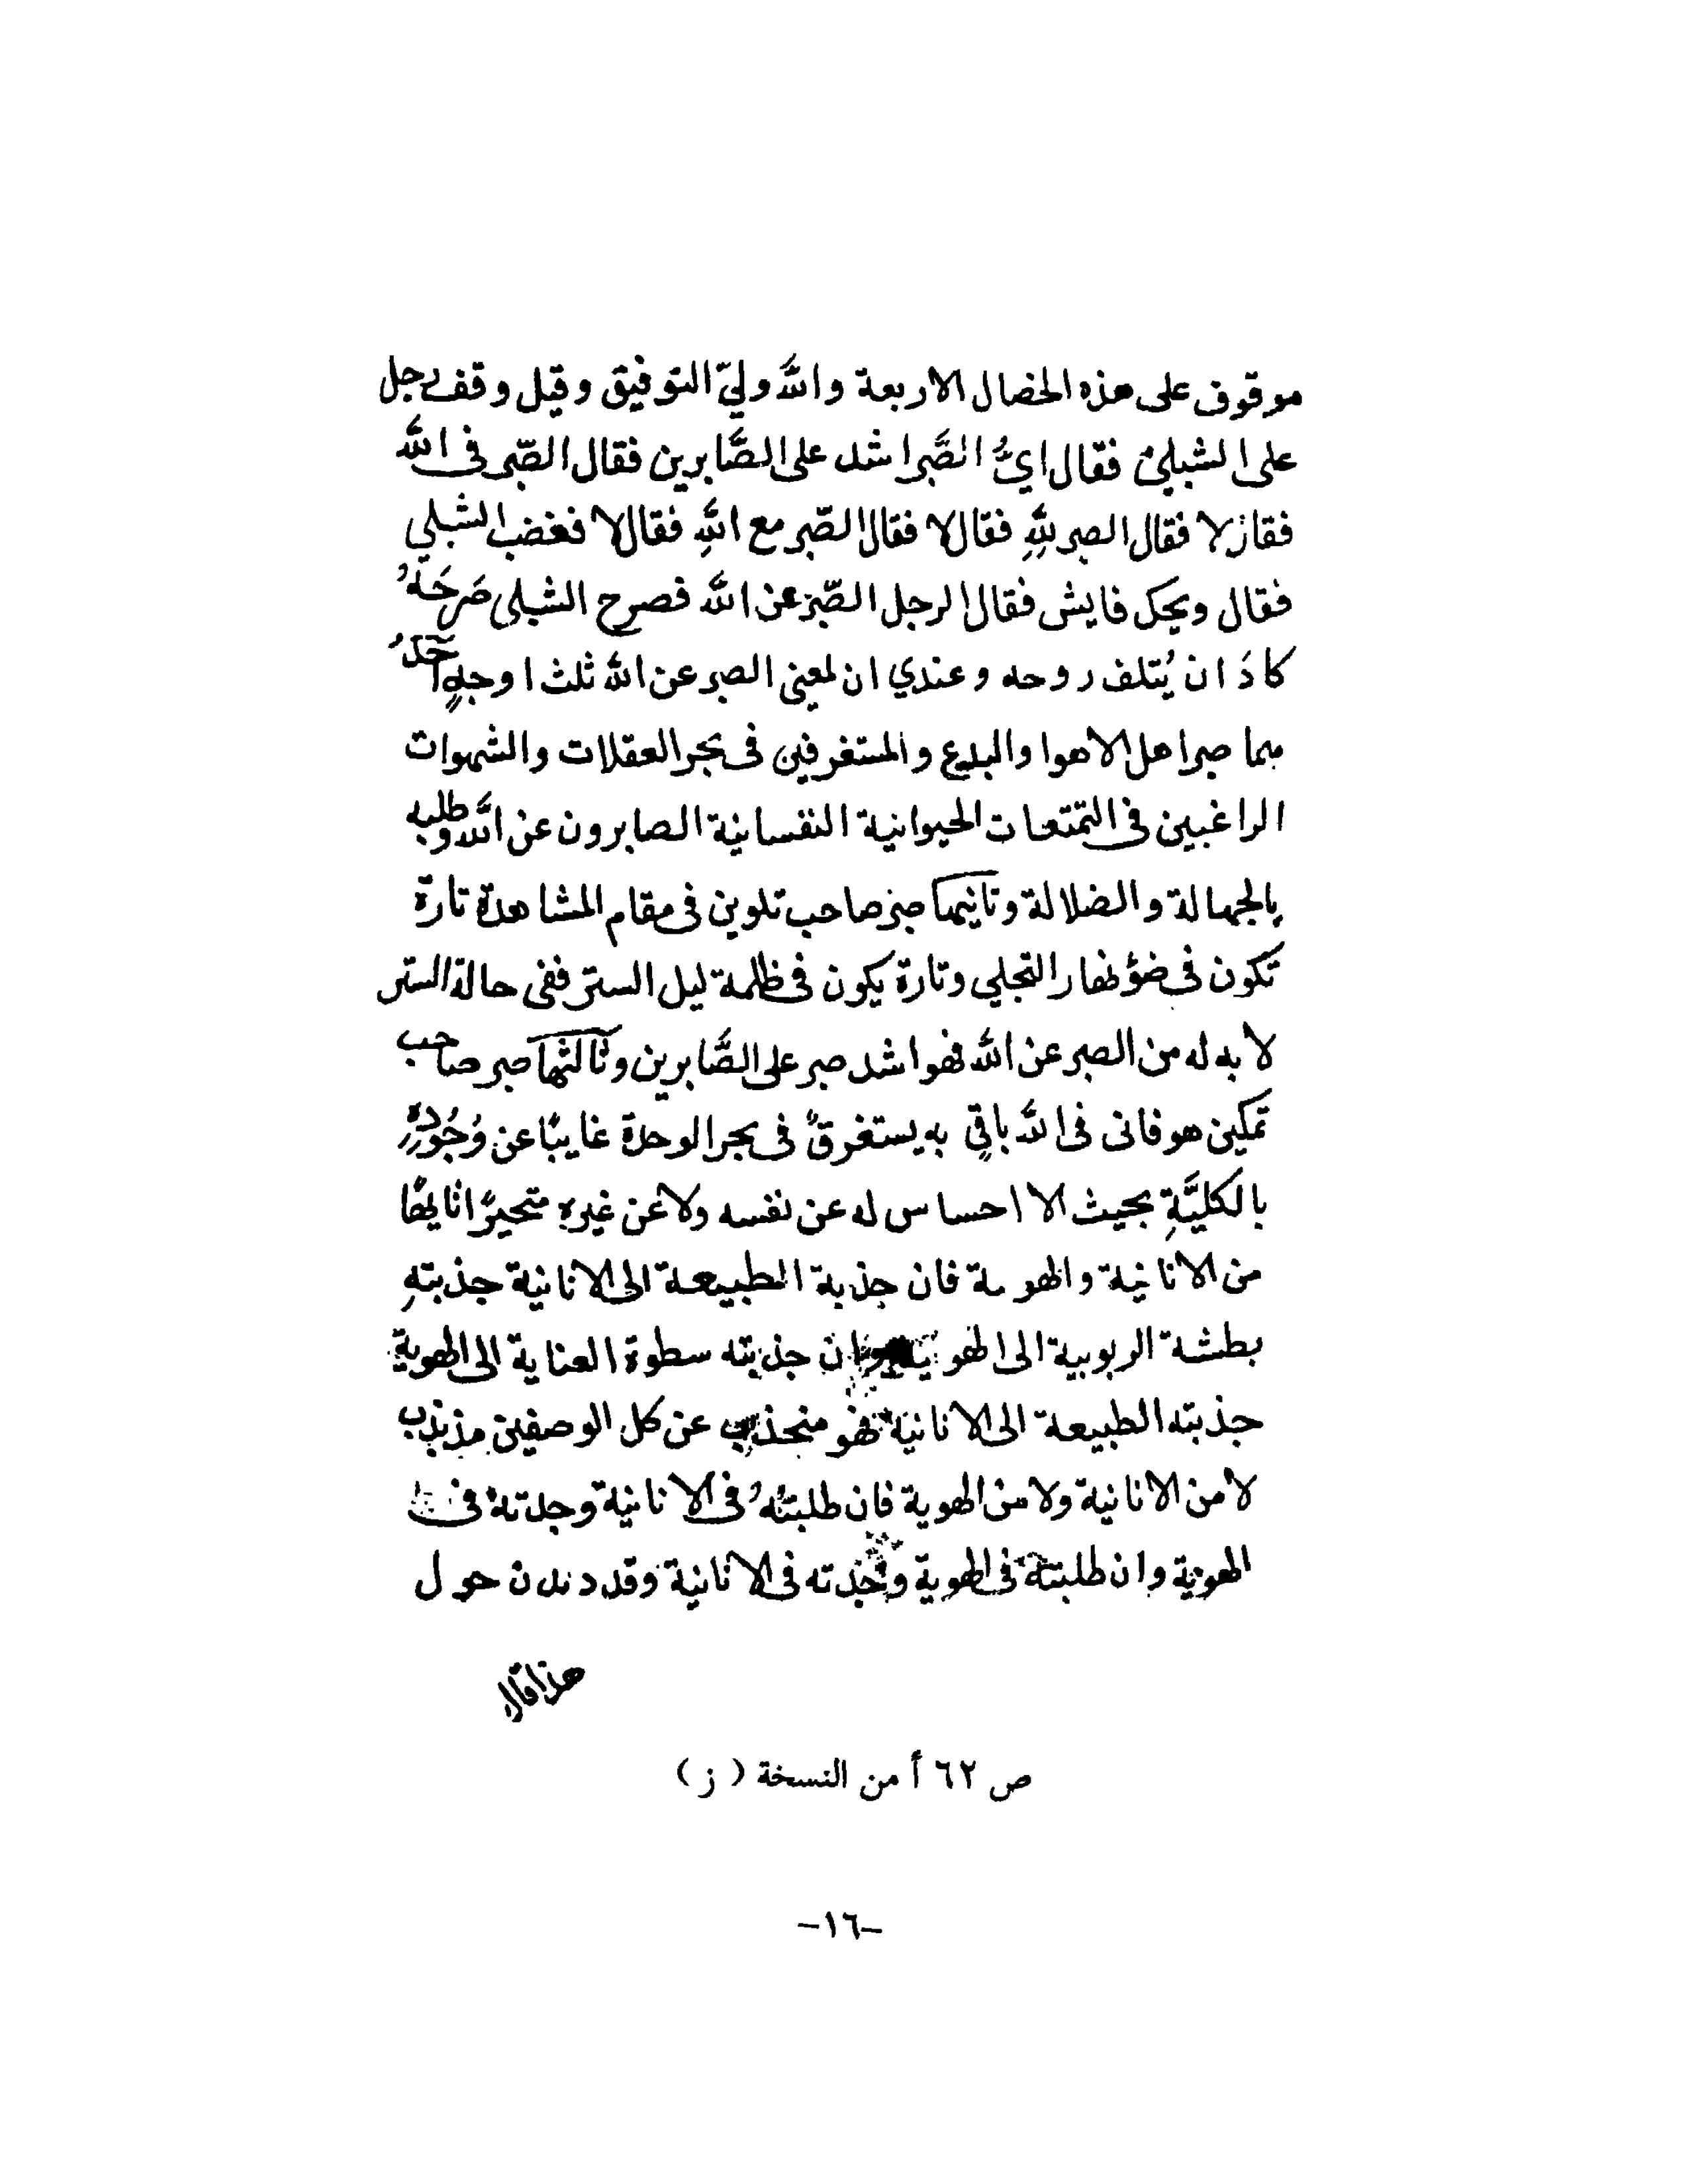 موقوف على هذه الخصال الاربعة والله وليّ التوفيق وقيل وقف رجل
على الشبلي فقال ايُّ الصَّبر اشد على الصَّابرين فقال الصّبر في الله
فقال لا فقال الصبر للهِ فقال لا فقال الصّبر مع اللهِ فقال لا فغضب الشبلي
فقال ويحك فايش فقال الرجل الصّبر عن الله فصرح الشبلى صَرخَهُ
كادَ ان يُتلف روحه وعندي ان لمعنى الصبر عن الله ثلث اوجهٍ احدُ
هما صبر اهل الاهوا والبدع والمستغرقين في بحر الغفلات والشهوات
الراغبين في التمتعات الحيوانية النفسانية الصابرون عن الله وطلبه
بالجهالة والضلالة وثانيهما صبر صاحب تلوين في مقام المشاهدة تارة
تكون في ضؤ نهار التجلي وتارة يكون في ظلمة ليل الستر ففى حالة الستر
لا بد له من الصبر عن الله فهو اشد صبر على الصَّابرين وثالثها صبر صاحب
تمكين هو فانى فى الله باقٍ به يستغرقُ في بحر الوحدة غايبًا عن وُجُودِهِ
بالكليَّةِ بحيث الا احساس له عن نفسه ولا عن غيره متحيرًا تايهًا
من الانانية والهوية فان جذبة الطبيعة الى الانانية جذبتهِ
بطشة الربوبية الى الهوية وان جذبته سطوة العناية الى الهوية
جذبته الطبيعة الى الانانية فهو منجذب عن كل الوصفين مذبذب
لا من الانانية ولا من الهوية فان طلبتهُ في الانانية وجدته في
الهوية وان طلبته في الهوية وجدته في الانانية وقد دندن حول
هذا قال
ص ٦٢ أ من النسخة ( ز )
–١٦–